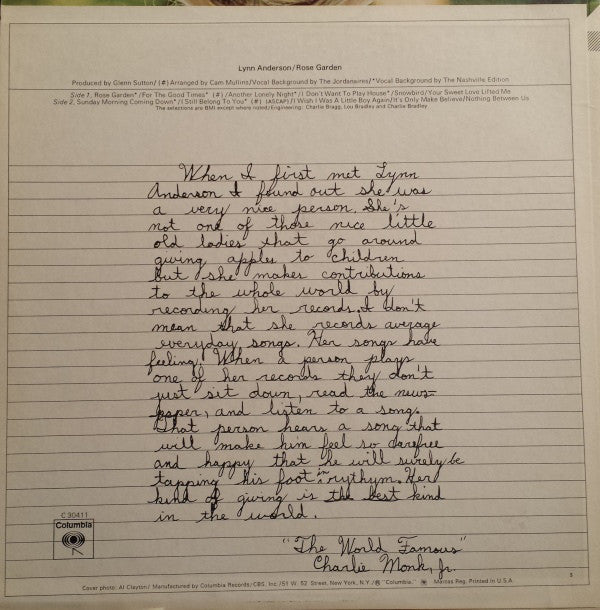 Lynn Anderson/Rose Garden
Produced by Glenn Sutton/(#) Arranged by Cam Mullins/Vocal Background by The Jordanaires/*Vocal Background by The Nashville Edition
Side 1, Rose Garden*/For The Good Times* (#)/Another Lonely Night*/I Don't Want To Play House*/Snowbird/Your Sweet Love Lifted Me
Side 2, Sunday Morning Coming Down*/I Still Belong To You* (#) (ASCAP)/I Wish I Was A Little Boy Again/It's Only Make Believe/Nothing Between Us
The selections are BMI except where noted/Engineering: Charlie Bragg, Lou Bradley and Charlie Bradley
When I first met Lynn
Anderson I found out she was
a very nice person. She's
not one of those nice little
old ladies that go around
giving apples to children
but she makes contributions
to the whole world by
recording her records. I don't
mean that she records average
everyday songs. Her songs have
feeling. When a person plays
one of her records they don't
just sit down, read the news-
paper, and listen to a song.
That person hears a song that
will make him feel so carefree
and happy that he will surely be
tapping his foot in rythym. Her
kind of giving is the best kind
in the world.
"The World Famous"
Charlie Monk, Jr.
C 30411
Columbia
Cover photo: Al Clayton/ Manufactured by Columbia Records/CBS, Inc./51 W. 52 Street, New York, N.Y./® "Columbia," Marcas Reg. Printed in U.S.A.